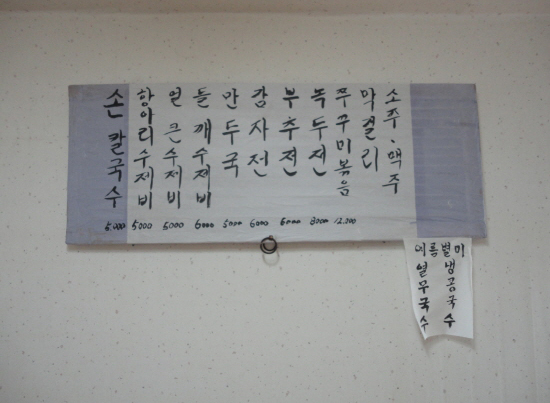 손칼국수 5.000
항아리수제비 5000
얼큰수제비 5000
들깨수제비 6000
만두국 5000
감자전 6000
부추전 6000
녹두전 8000
쭈꾸미볶음 12.000
막걸리
소주、맥주
여름별미
열무국수
냉콩국수